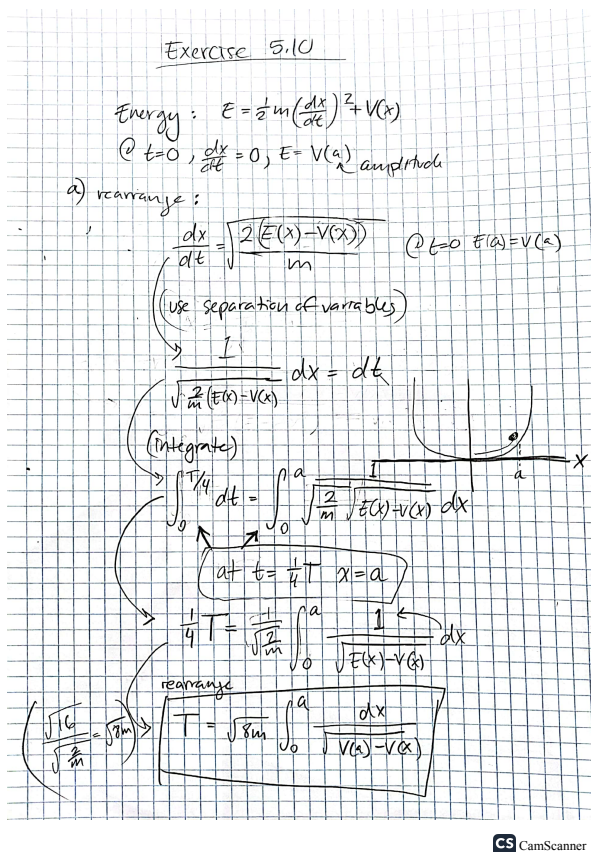 Exercise 5.10
Energy: E = ½ m (dx/dt)² + V(x)
@ t=0, dx/dt = 0, E = V(a) ↖ amplitude
a) rearrange:
dx/dt = √(2(E(x) – V(x))/m) @ t=0 E(a) = V(a)
(use separation of variables)
1/√(2/m (E(x) – V(x) dx = dt
(integrate)
x
a
∫₀^(T/4) dt = ∫₀^a 1/(√(2/m) √(E(x) – V(x))) dx
at t = ¼T x = a
¼ T = 1/√(2/m) ∫₀^a 1/√(E(x) – V(x)) dx
rearrange
(√16/√(2/m) = √8m)
T = √8m ∫₀^a dx/√(V(a) – V(x))
CS CamScanner